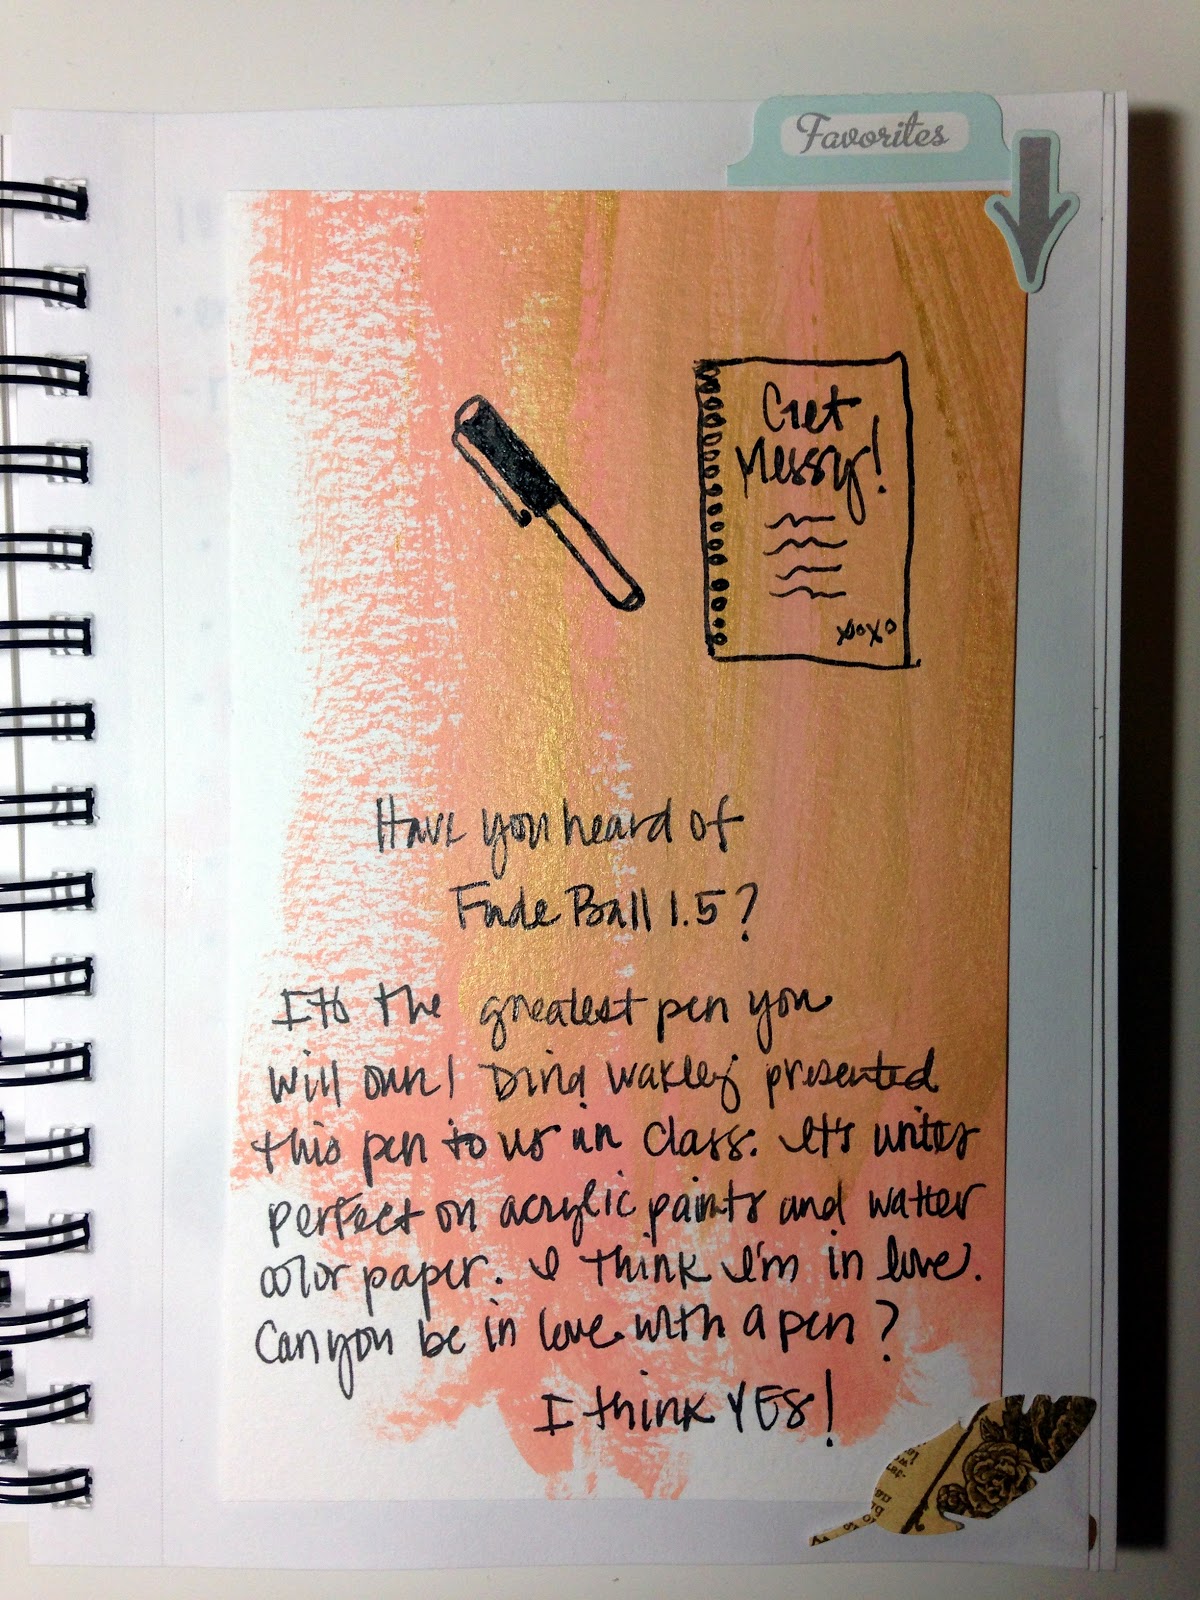 Favorites
Get
Messy!
xoxo
Have you heard of
Fude Ball 1.5?
It's the greatest pen you
will own! Dina Wakley presented
this pen to us in class. It's writes
perfect on acrylic paints and watter
color paper. I think I'm in love.
Can you be in love with a pen?
I think YES!